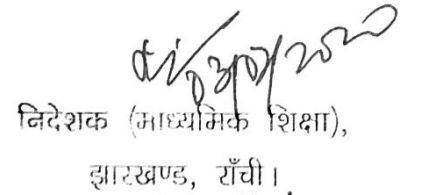 निदेशक (माध्यमिक शिक्षा),
झारखण्ड, राँची।